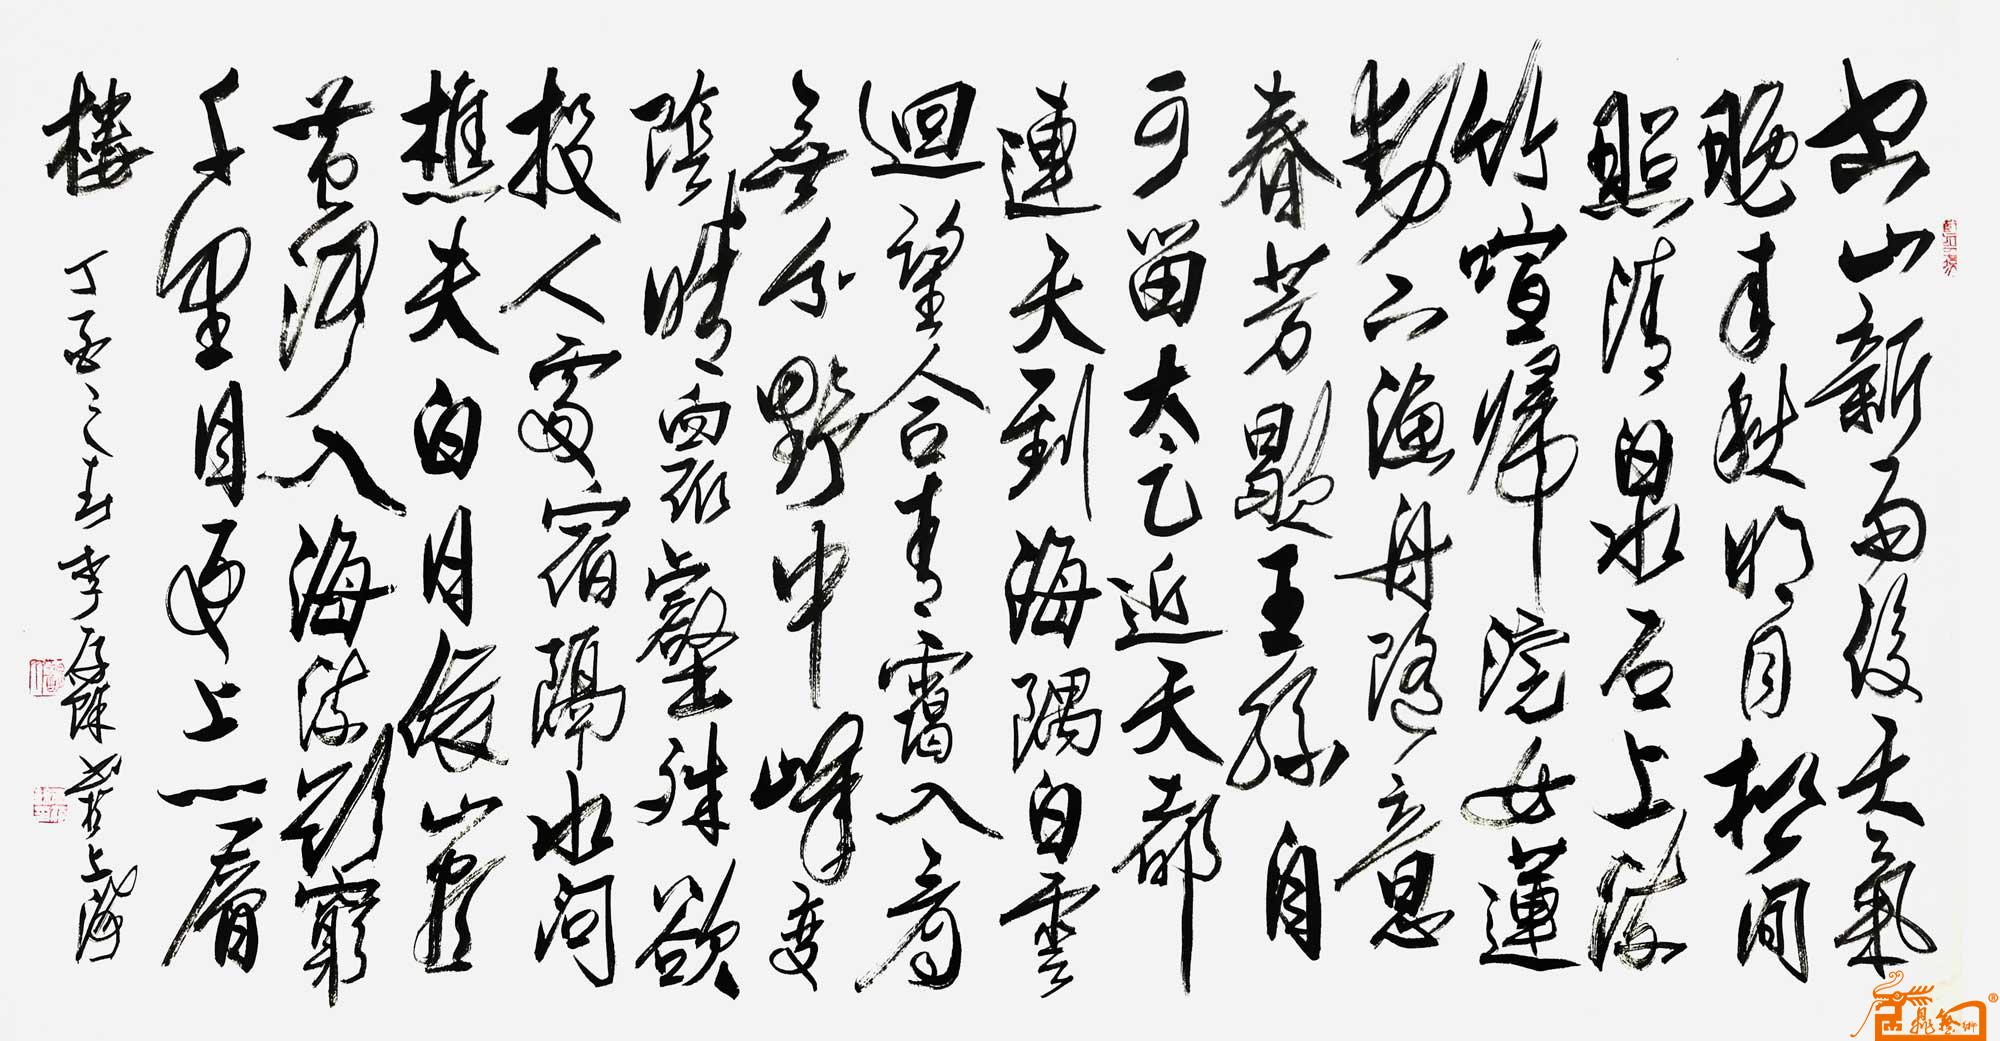 空山新雨後天氣
晚来秋明月松间
照清泉石上流
竹喧歸浣女蓮
動下漁舟随意
春芳歇王孫自
可留太乙近天都
連天到海隅白雲
迴望合青靄入看
無分野中峰變
陰晴眾壑殊欲
投人處宿隔水問
樵夫白日依山盡
黄河入海流欲窮
千里目更上一層
樓 丁酉之春李 書於上海